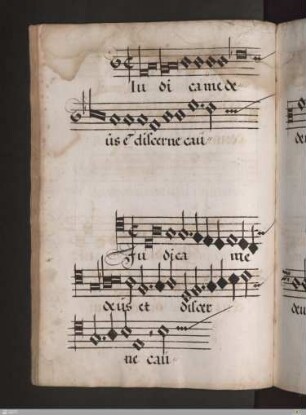 Iu di ca me de-
us et discerne cau-
Ju dica me
deus et discer
ne cau-